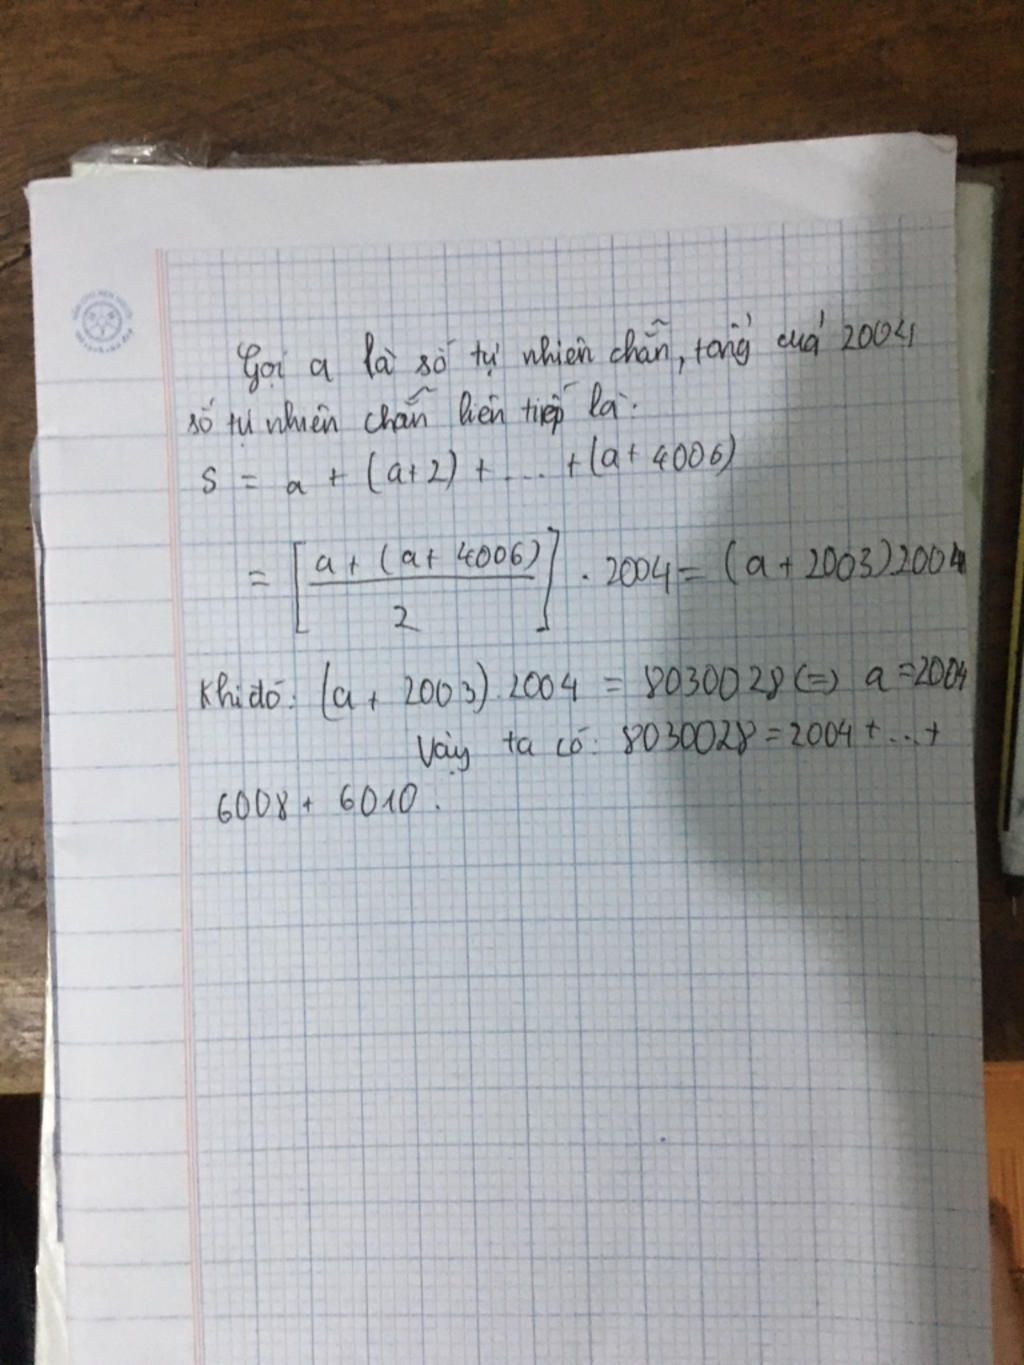 Gọi a là số tự nhiên chẵn, tổng cuả 2004
số tự nhiên chẵn liên tiếp là:
S = a + (a+2) + ... + (a + 4006)
= [(a + (a + 4006))/2] . 2004 = (a + 2003) 2004
Khi đó: (a + 2003). 2004 = 8030028 (=) a = 2004
Vậy ta có: 8030028 = 2004 + ... +
6008 + 6010.